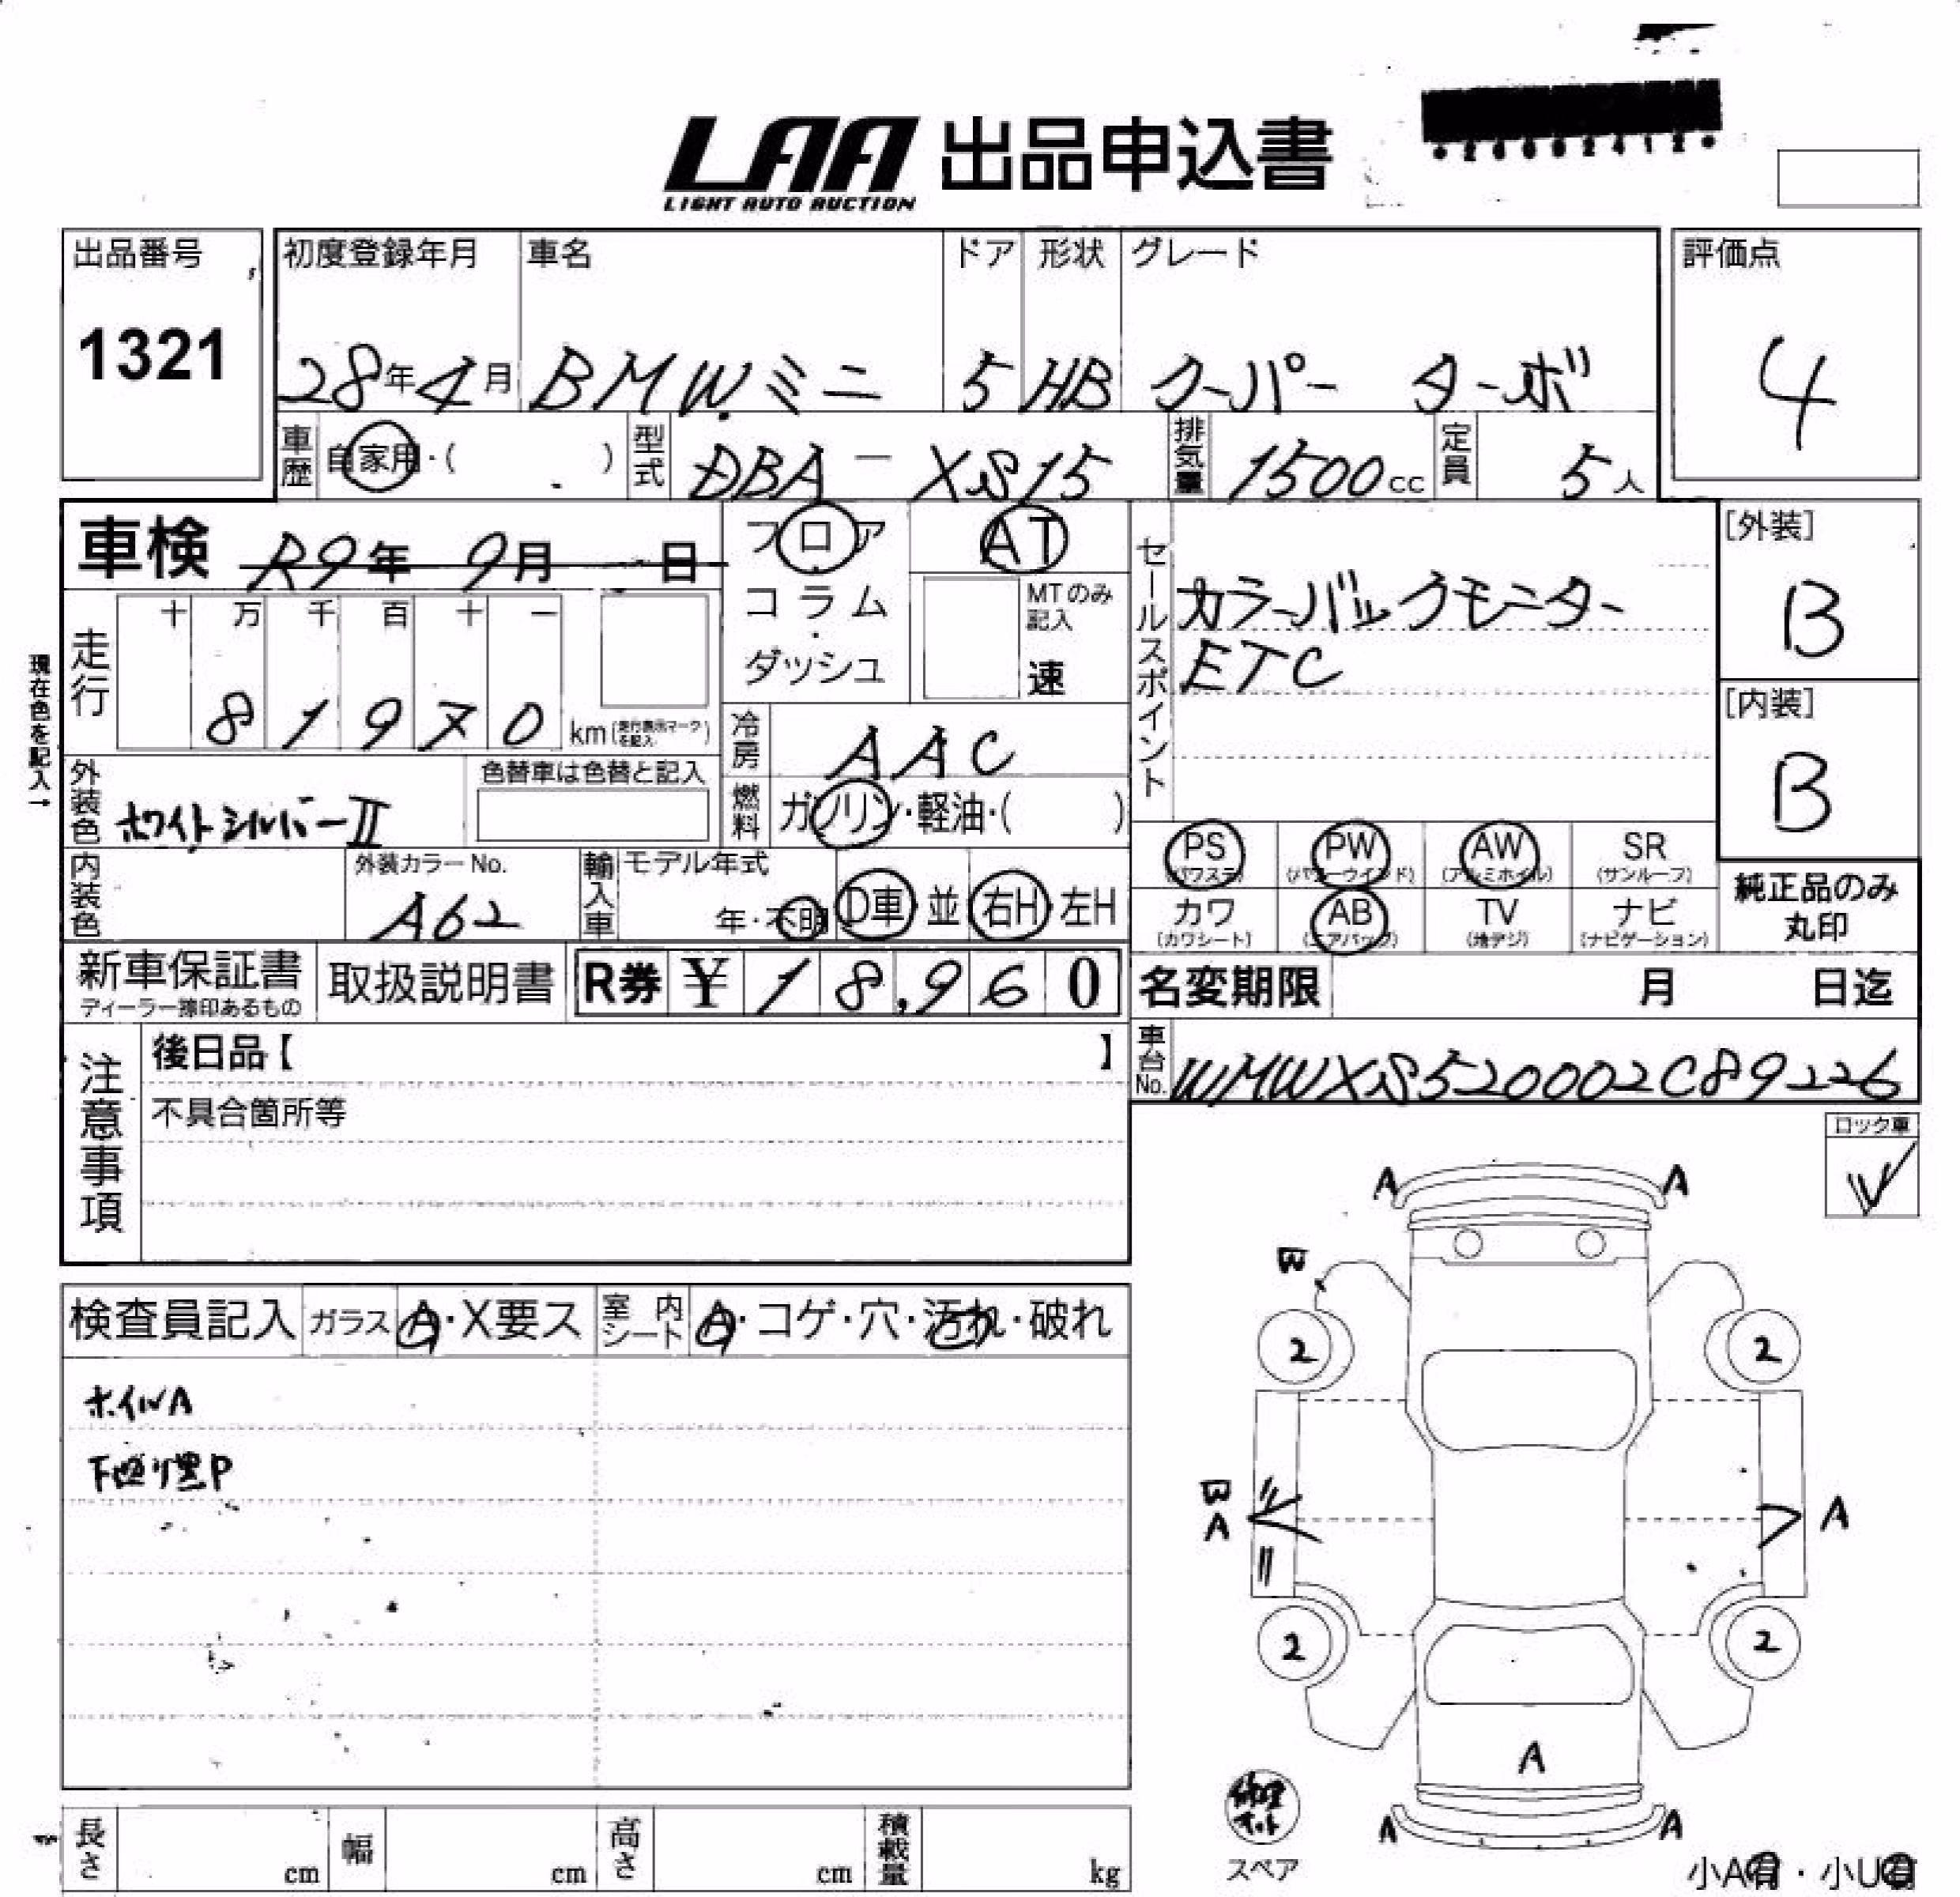 LAA 出品申込書
LIGHT AUTO AUCTION
出品番号
1321
初度登録年月
28年4月
車名
BMW.ミニ
ドア
5
形状
HB
グレード
クーパー ターボ
評価点
4
車歴 自家用・( )
型式 DBA-XS15
排気量 1500cc
定員 5人
車検 R9年 9月 日
フロア
コラム
・
ダッシュ
AT
MTのみ
記入
速
セールスポイント
カラーバックモニター
ETC
[外装]
B
[内装]
B
現在色を記入→
走行
十 万 千 百 十 一
8 1 9 7 0 km(走行表示マークを記入)
冷房 AAC
燃料 ガソリン・軽油・( )
外装色 ホワイトシルバーⅡ
色替車は色替と記入
内装色
外装カラーNo.
A62
輸入車
モデル年式
年・不明
D車 並 右H 左H
PS
(パワステ)
PW
(パワーウインド)
AW
(アルミホイル)
SR
(サンルーフ)
カワ
(カワシート)
AB
(エアバッグ)
TV
(地デジ)
ナビ
(ナビゲーション)
純正品のみ
丸印
新車保証書
ディーラー捺印あるもの
取扱説明書
R券 ¥18,960
名変期限 月 日迄
車台No. WMWXS520002C89226
注意事項
後日品【 】
不具合箇所等
ロック車
✓
検査員記入
ガラス A・X要ス
室内シート A・コゲ・穴・汚れ・破れ
ホイルA
下回り黒P
A A
W
2 2
W
A A
2 2
A
A A
修理キット
スペア
小A有・小U有
長さ cm
幅 cm
高さ cm
積載量 kg